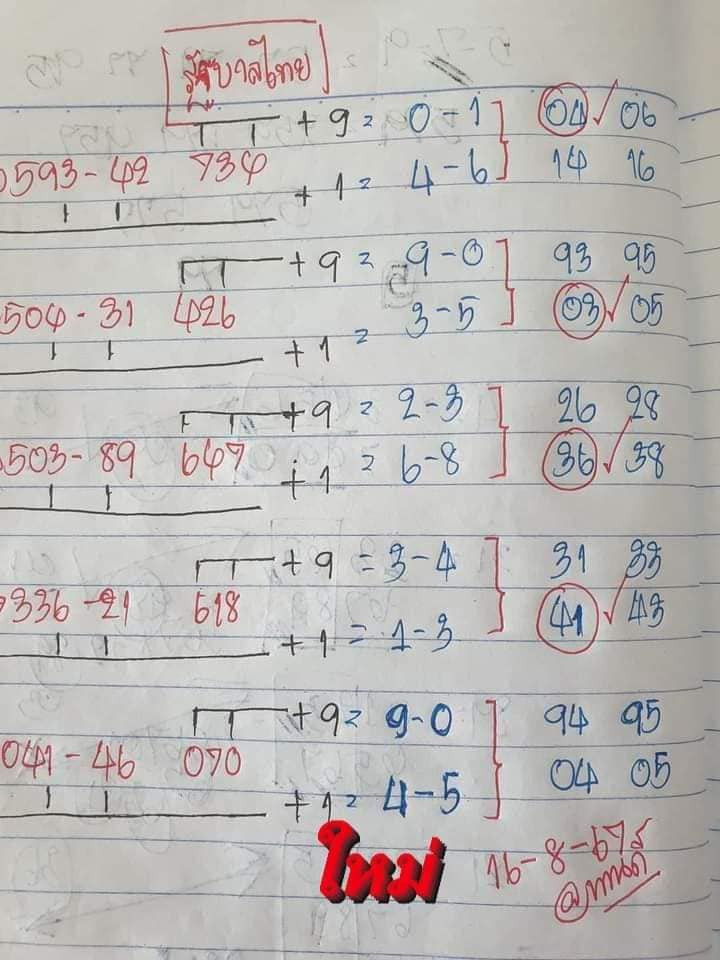 รัฐบาลไทย
+ 9 = 0 - 1 04 ✓ 06
593 - 42 734
+ 1 = 4 - 6 14 16
+ 9 = 9 - 0 93 95
504 - 31 426
+ 1 = 3 - 5 03 ✓ 05
+ 9 = 2 - 3 26 28
503 - 89 647
+ 1 = 6 - 8 36 ✓ 38
+ 9 = 3 - 4 31 33
336 - 21 618
+ 1 = 1 - 3 41 ✓ 43
+ 9 = 9 - 0 94 95
041 - 46 070
+ 1 = 4 - 5 04 05
ใหม่
16 - 8 - 67